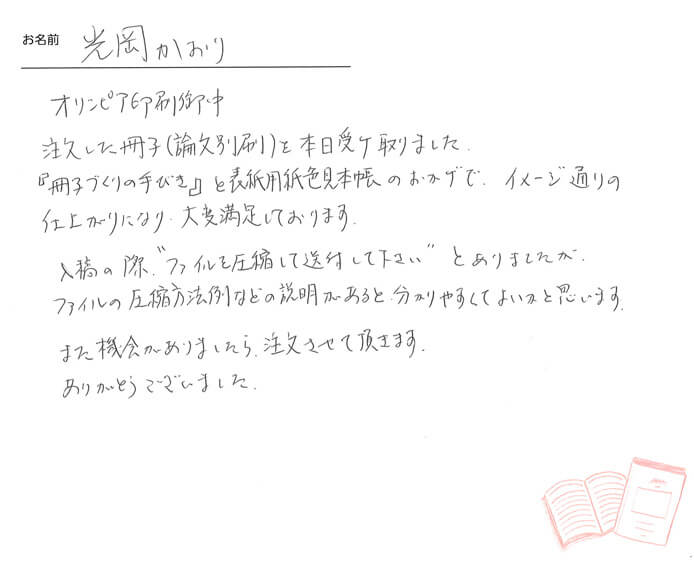 お名前 光岡かおり
オリンピア印刷御中
注文した冊子(論文別刷り)を本日受ケ取りました.
『冊子づくりの手びき』と表紙用紙色見本帳のおかげで、イメージ通りの
仕上がりになり、大変満足しております.
入稿の際、"ファイルを圧縮して送付して下さい"とありましたが、
ファイルの圧縮方法例などの説明があると、分かりやすくてよいかと思います.
また機会がありましたら、注文させて頂きます.
ありがとうございました.